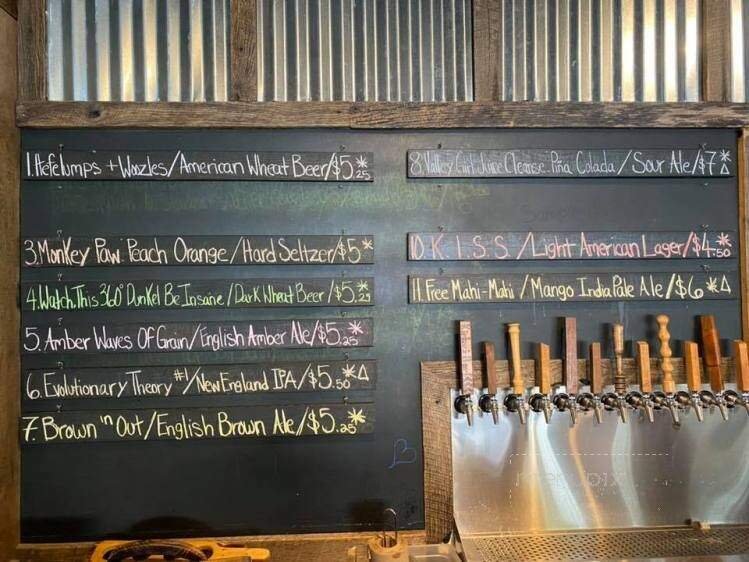 1. Hefelumps + Woozles/American Wheat Beer/$5.25*
3. Monkey Paw Peach Orange/Hard Seltzer/$5*
4. Watch This 360° Dunkel Be Insane/Dark Wheat Beer/$5.25*
5. Amber Waves Of Grain/English Amber Ale/$5.25*
6. Evolutionary Theory #1/New England IPA/$5.50*Δ
7. Brown 'n Out/English Brown Ale/$5.25*
8. Valley Girl Juice Cleanse: Piña Colada/Sour Ale/$7*Δ
10. K.I.S.S./Light American Lager/$4.50*
11. Free Mahi-Mahi/Mango India Pale Ale/$6*Δ